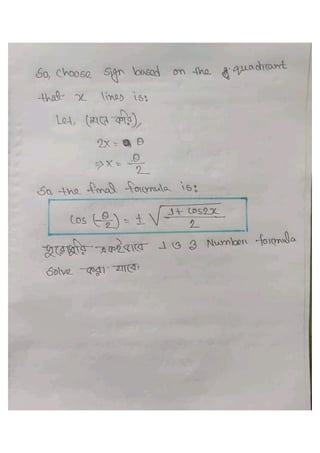 So, choose sign based on the quadrant
that x lines is:
Let, (মনে করি),
2x = θ
⇒ x = θ/2
So the final formula is:
cos (θ/2) = ± √(1 + cos2x / 2)
একইভাবে 1 ও 3 Number formula
solve করা যাবে।